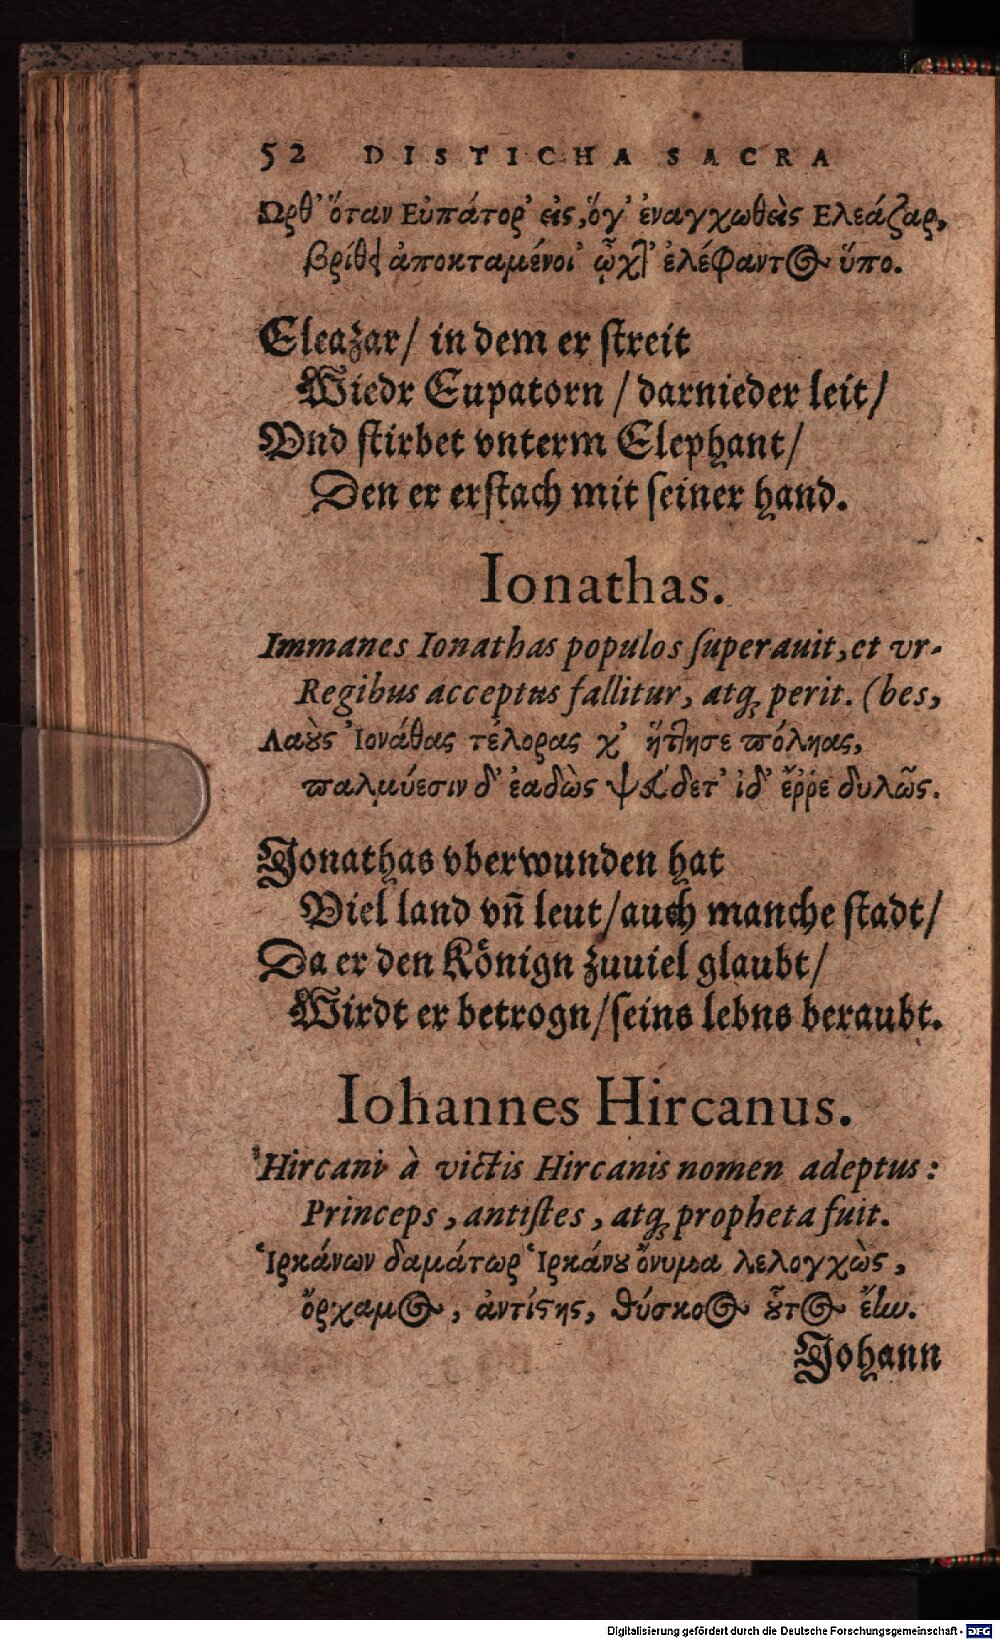 52 DISTICHA SACRA
Ωρθ' ὅταν Εὐπάτορ' εἰς, ὅγ' ἐναγχωθεὶς Ελεάζαρ,
ἀποκταμένοι' ἐλέφαντος ὕπο.
Eleazar/ in dem er streit
Wiedr Eupatorn / darnieder leit/
Vnd stirbet vnterm Elephant/
Den er erstach mit seiner hand.
Ionathas.
Immanes Ionathas populos superauit, et vr-
Regibus acceptus fallitur, atq; perit. (bes,
Λαοὺς Ἰονάθας τέλορας χ' ἥττησε πόληας,
παλμύεσιν δ' ἑαδὼς ἰδ' ἔῤῥε δυλῶς.
Jonathas vberwunden hat
Viel land vn̄ leut/ auch manche stadt/
Da er den Könign zuuiel glaubt/
Wirdt er betrogn/ seins lebns beraubt.
Iohannes Hircanus.
Hircani à victis Hircanis nomen adeptus:
Princeps, antistes, atq; propheta fuit.
Ἱρκάνων δαμάτωρ Ἱρκάνου ὄνυμα λελογχὼς,
ὄρχαμος, ἀντίστης, θύσκος οὗτος ἔην.
Johann
Digitalisierung gefördert durch die Deutsche Forschungsgemeinschaft - DFG